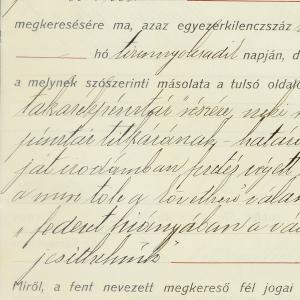 megkeresésére ma, azaz egyezerkilenczszáz
hó tizennyolcadik napján, d
a melynek szószerinti másolata a tulsó oldalo
takarékpénztár" részére, neki
pénztár titkárának - határ
ját irodámban
a mun tok g következő válas
"fedezet hiányában a vál
Miről, a fent nevezett megkereső fél jogai